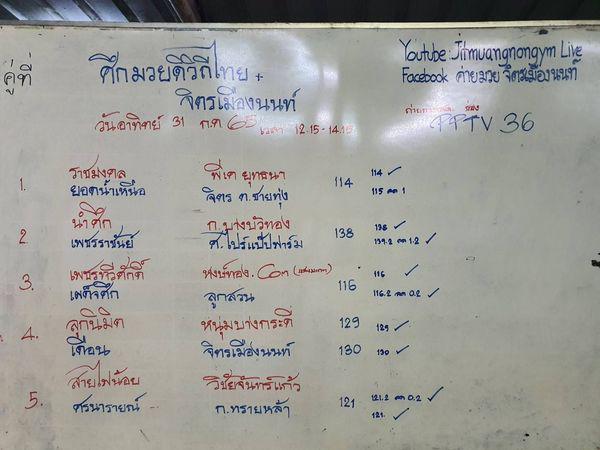 ศึกมวยดีวิถีไทย +
จิตรเมืองนนท์
Youtube: Jitmuangnongym Live
Facebook ค่ายมวย จิตรเมืองนนท์
คู่ที่
วันอาทิตย์ 31 ก.ค 65 เวลา 12.15 - 14.15
ช่อง PPTV 36
1. ราชมงคล พีเค ยุทธนา 114 114 ✓
ยอดน้ำเหนือ จิตร ต.ชายทุ่ง 115 ลด 1
2. นำศึก ก.บางบัวทอง 138 138 ✓
เพชรราชันย์ ศ.ไปร์แป๊ปฟาร์ม 139.2 ลด 1.2 ✓
3. เพชรทวีศักดิ์ หงษ์ทอง. 116 116 ✓
เผด็จศึก ลูกสวน 116.2 ลด 0.2 ✓
4. ลูกนิมิต หนุ่มบางกระดี่ 129 129 ✓
เดือน จิตรเมืองนนท์ 130 130 ✓
5. สายไฟน้อย วิชัยจันทร์แก้ว 121 121.2 ลด 0.2 ✓
ศรนารายณ์ ก.ทรายหล้า 121. ✓